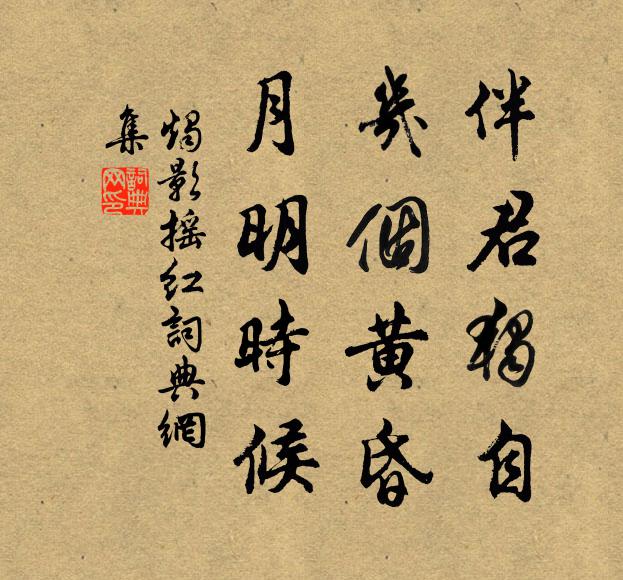 伴君獨自
幾個黃昏
月明時候
燭影搖紅詞典網
集
詞典
网印